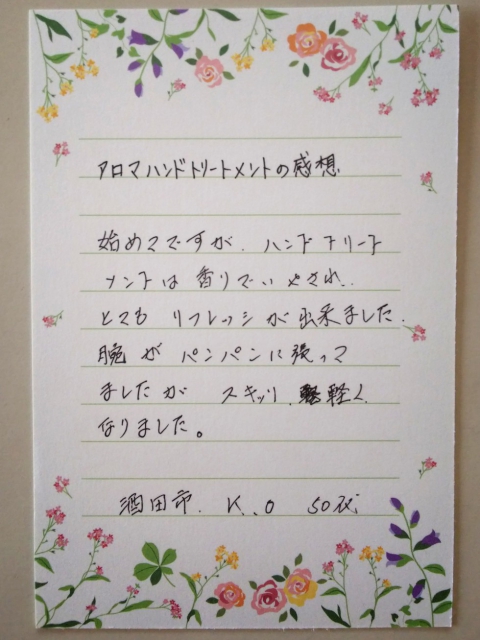 アロマハンドトリートメントの感想
始めてですが、ハンドトリート
メントは香りでいやされ、
とてもリフレッシュが出来ました。
腕がパンパンに張って
ましたがスキッリ、軽く
なりました。
酒田市、K.O 50代